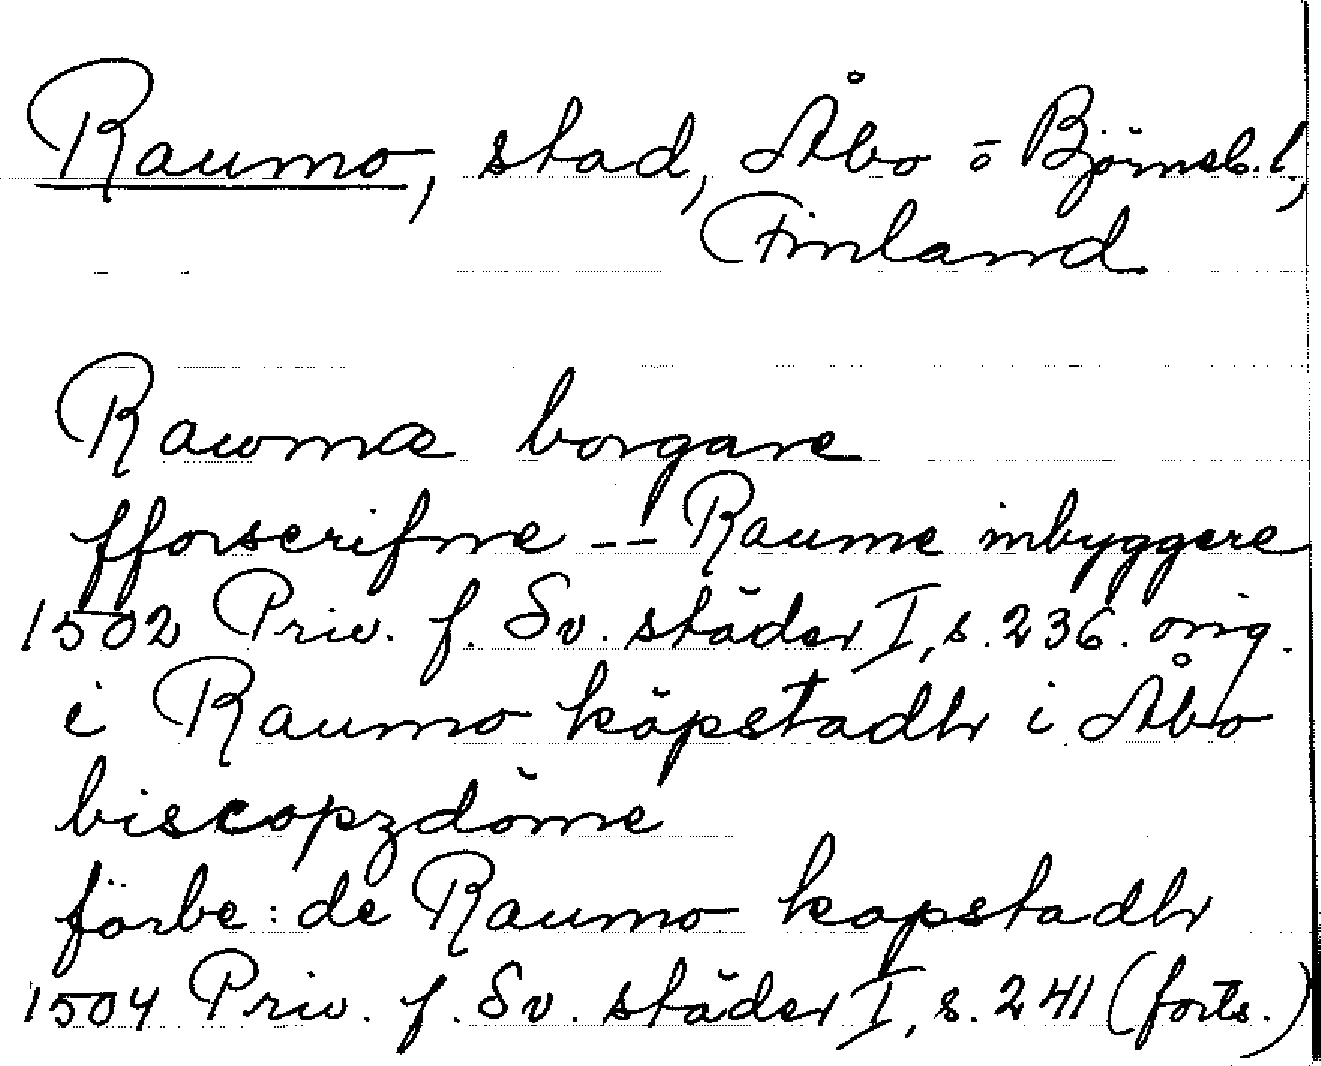 Raumo, stad, Åbo o Björneb. l.,
Finland
Rawmæ borgare
fforscrifne -- Raume inbyggere
1502 Priv. f. Sv. städer I, s. 236. orig.
i Raumo köpstadh i Åbo
biscopzdöme
förbe: de Raumo kopstadh
1504 Priv. f. Sv. städer I, s. 241 (forts.)